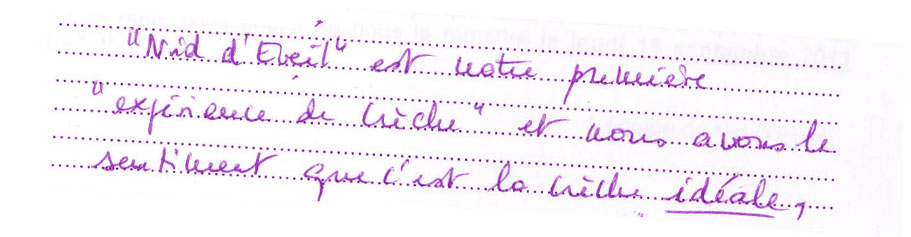 "Nid d'Eveil" est notre première
"expérience de crèche" et nous avons le
sentiment que c'est la crèche idéale,